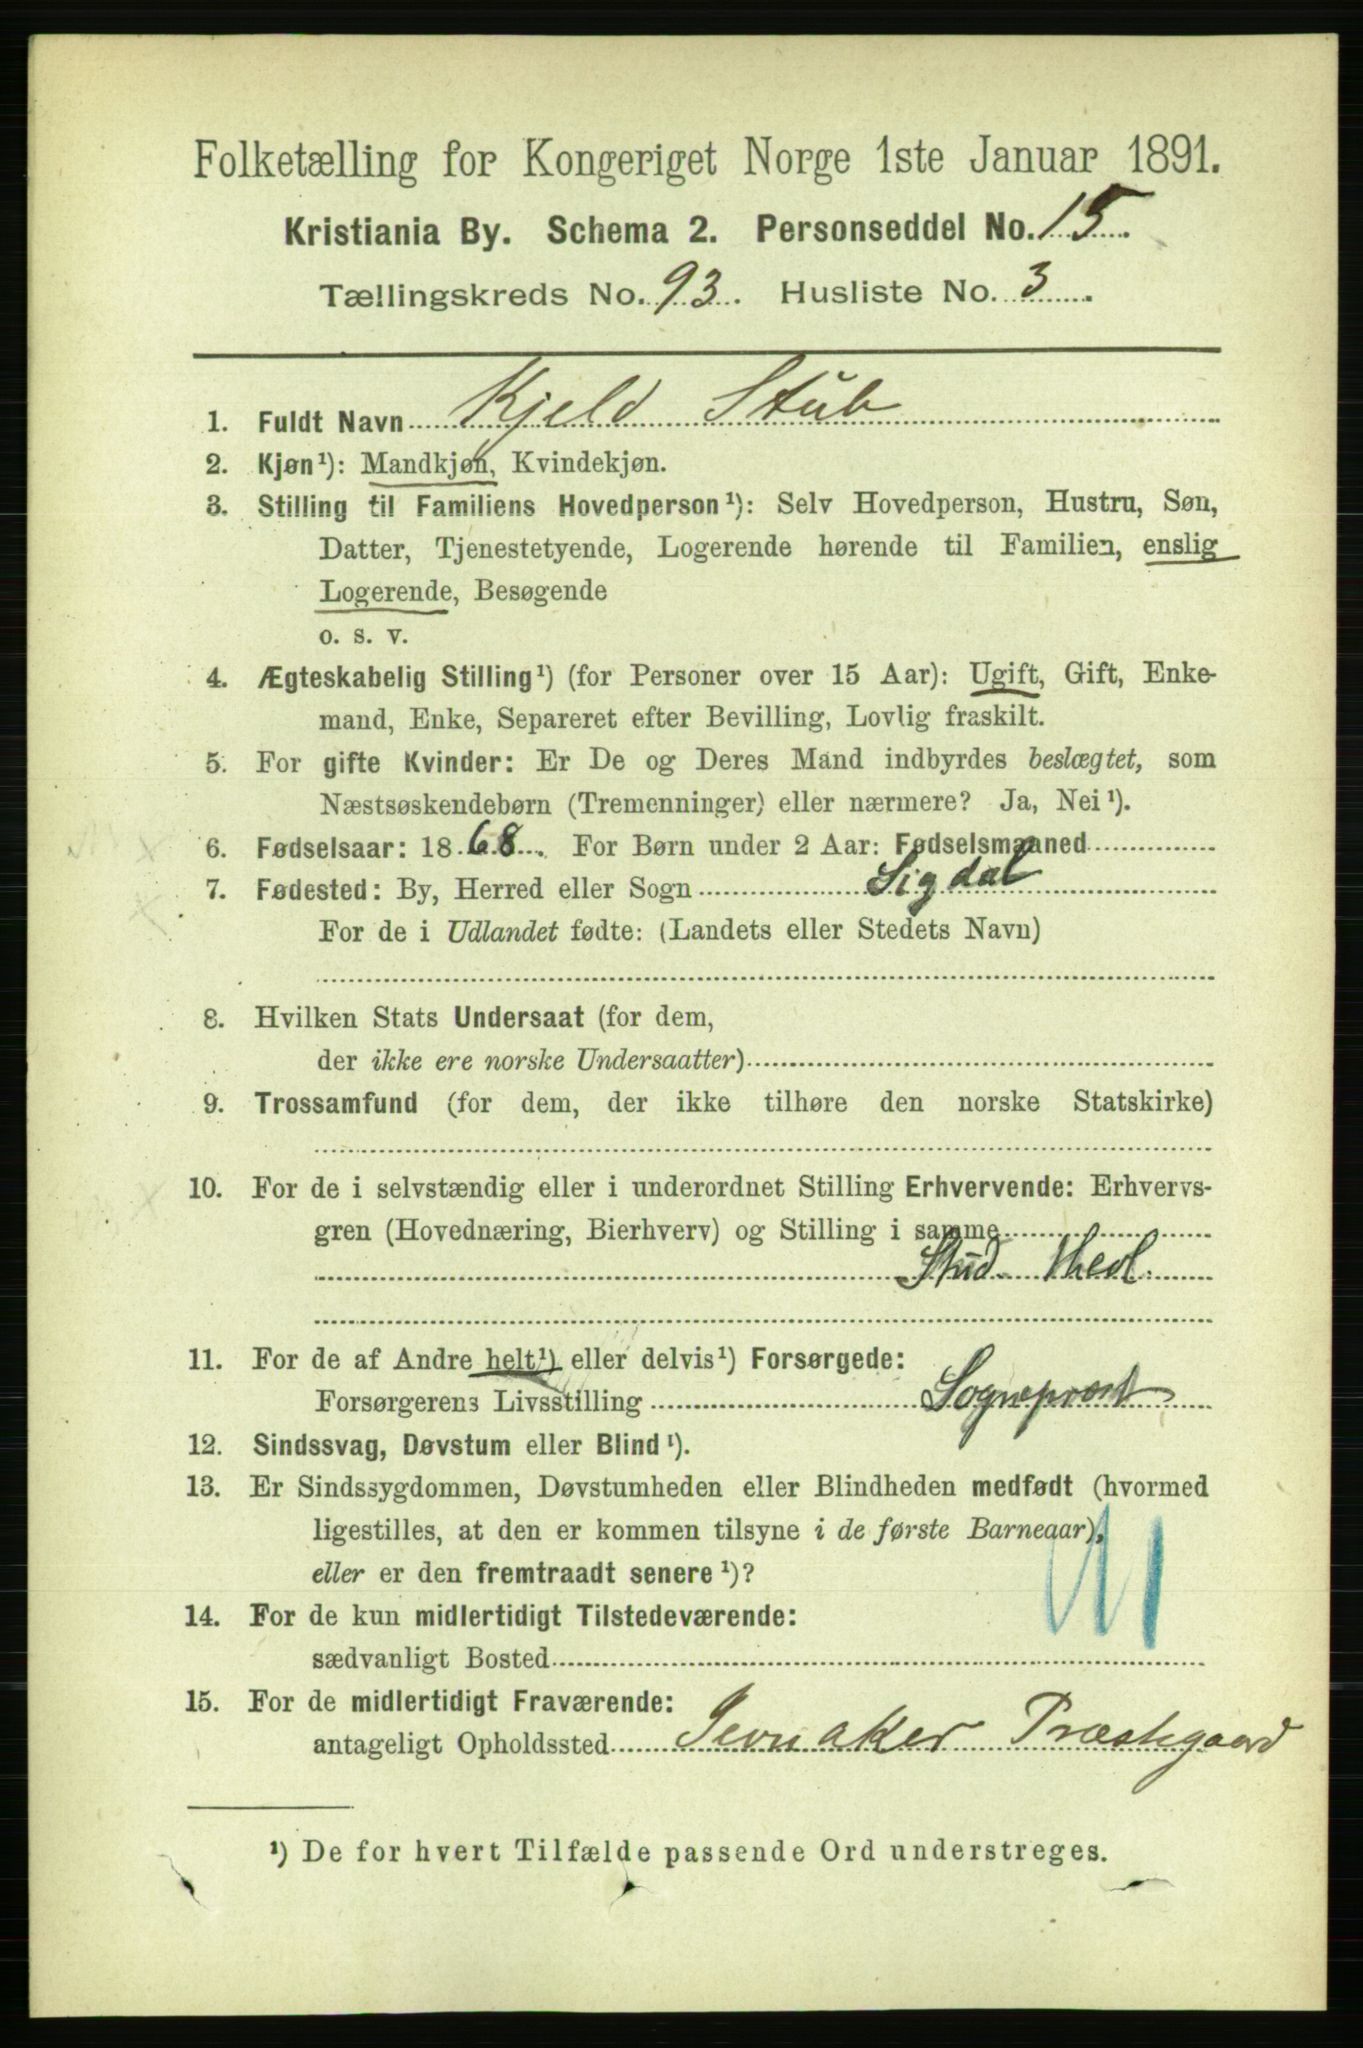 Folketælling for Kongeriget Norge 1ste Januar 1891.
Kristiania By. Schema 2. Personseddel No. 15.
Tællingskreds No. 93. Husliste No. 3.
1. Fuldt Navn Kjeld Stub
2. Kjøn¹): Mandkjøn, Kvindekjøn.
3. Stilling til Familiens Hovedperson¹): Selv Hovedperson, Hustru, Søn,
Datter, Tjenestetyende, Logerende hørende til Familien, enslig
Logerende, Besøgende
o. s. v.
4. Ægteskabelig Stilling¹) (for Personer over 15 Aar): Ugift, Gift, Enke-
mand, Enke, Separeret efter Bevilling, Lovlig fraskilt.
5. For gifte Kvinder: Er De og Deres Mand indbyrdes beslægtet, som
Næstsøskendebørn (Tremenninger) eller nærmere? Ja, Nei¹).
6. Fødselsaar: 1868. For Børn under 2 Aar: Fødselsmaaned
7. Fødested: By, Herred eller Sogn Sigdal
For de i Udlandet fødte: (Landets eller Stedets Navn)
8. Hvilken Stats Undersaat (for dem,
der ikke ere norske Undersaatter)
9. Trossamfund (for dem, der ikke tilhøre den norske Statskirke)
10. For de i selvstændig eller i underordnet Stilling Erhvervende: Erhvervs-
gren (Hovednæring, Bierhverv) og Stilling i samme
Stud. theol.
11. For de af Andre helt¹) eller delvis¹) Forsørgede:
Forsørgerens Livsstilling Sogneprest
12. Sindssvag, Døvstum eller Blind¹).
13. Er Sindssygdommen, Døvstumheden eller Blindheden medfødt (hvormed
ligestilles, at den er kommen tilsyne i de første Barneaar),
eller er den fremtraadt senere¹)?
14. For de kun midlertidigt Tilstedeværende:
sædvanligt Bosted
15. For de midlertidigt Fraværende:
antageligt Opholdssted Jevnaker Præstegaard
¹) De for hvert Tilfælde passende Ord understreges.